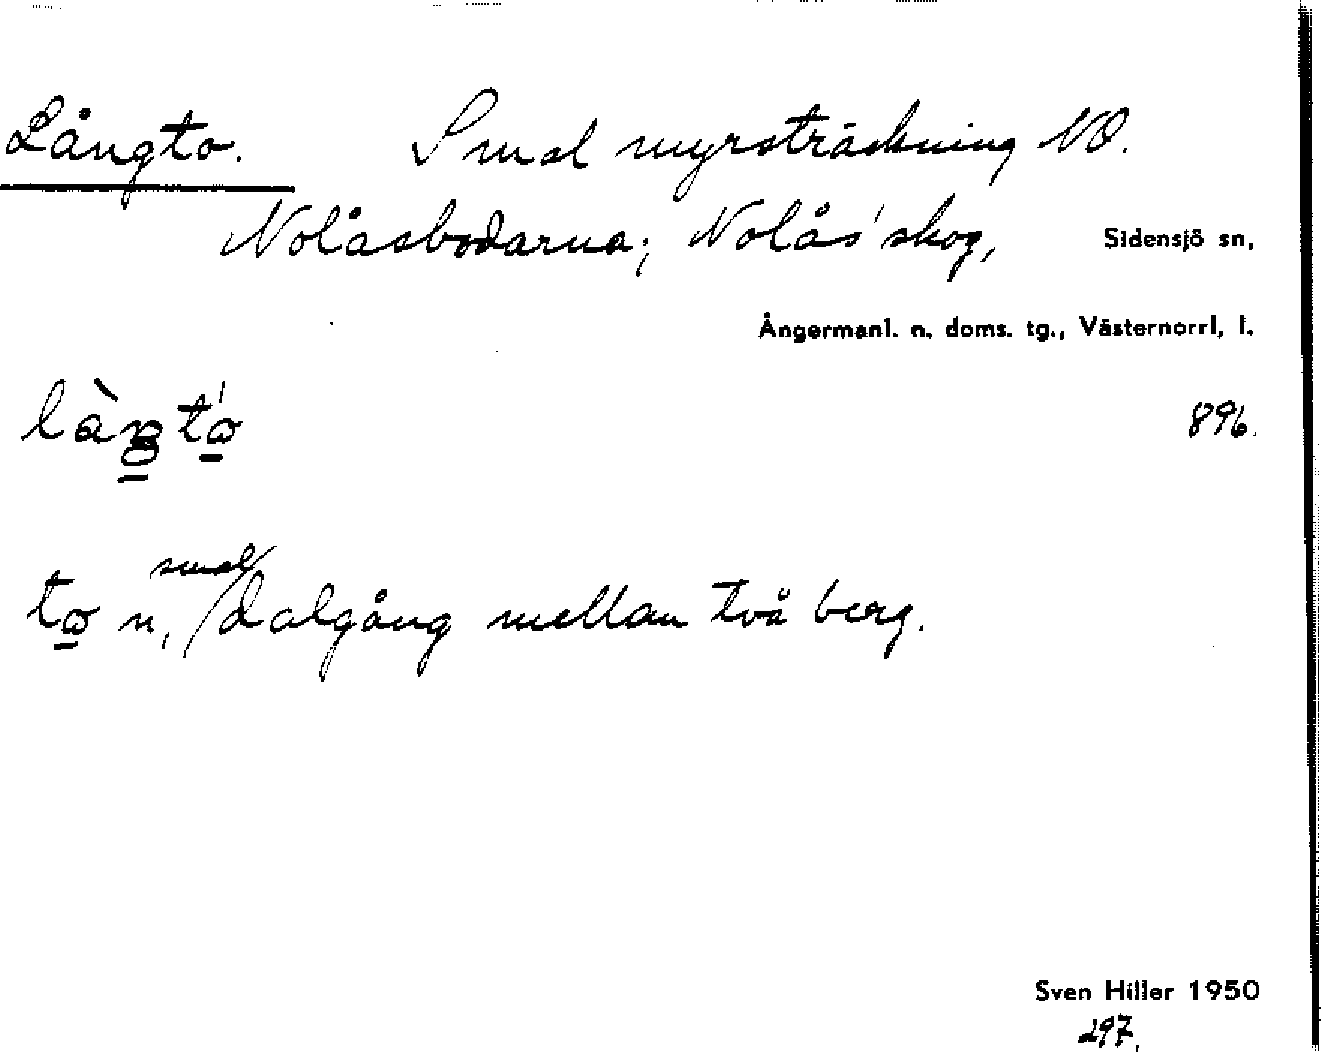 Långto. Smal myrsträckning NO.
Nolåsbodarna; Nolås' skog, Sidensjö sn,
Ångermanl. n. doms. tg., Västernorrl, l.
làŋtó̱ 896.
smal
to̱ n, / dalgång mellan två berg.
Sven Hiller 1950
297,